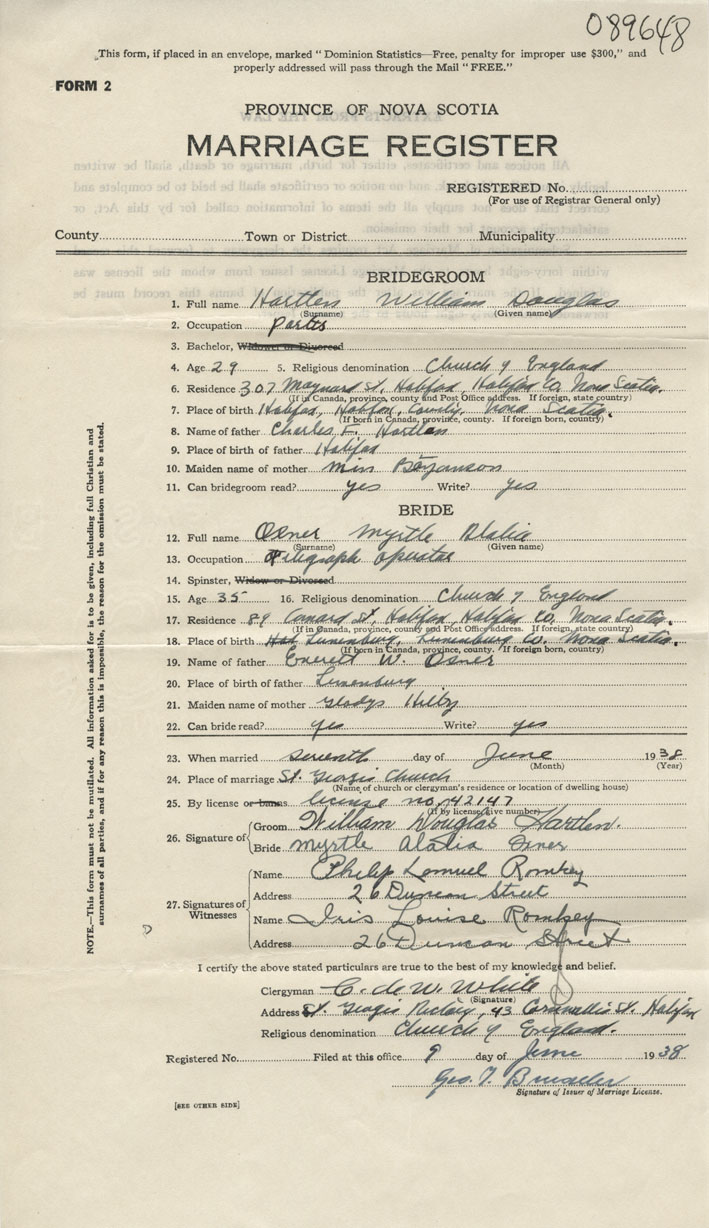 089648
This form, if placed in an envelope, marked "Dominion Statistics—Free, penalty for improper use $300," and
properly addressed will pass through the Mail "FREE."
FORM 2
PROVINCE OF NOVA SCOTIA
MARRIAGE REGISTER
REGISTERED No.
(For use of Registrar General only)
County Town or District Municipality
BRIDEGROOM
1. Full name Hartlen William Douglas
(Surname) (Given name)
2. Occupation Porter
3. Bachelor, Widower or Divorced
4. Age 29 5. Religious denomination Church of England
6. Residence 307 Maynard St, Halifax, Halifax Co, Nova Scotia.
(If in Canada, province, county and Post Office address. If foreign, state country)
7. Place of birth Halifax, Halifax, County, Nova Scotia.
(If born in Canada, province, county. If foreign born, country)
8. Name of father Charles E. Hartlen
9. Place of birth of father Halifax
10. Maiden name of mother Miss
11. Can bridegroom read? yes Write? yes
BRIDE
12. Full name Osner Myrtle Alalia
(Surname) (Given name)
13. Occupation Telegraph operator
14. Spinster, Widow or Divorced
15. Age 35 16. Religious denomination Church of England
17. Residence 89 Cunard St, Halifax, Halifax Co, Nova Scotia.
(If in Canada, province, county and Post Office address. If foreign, state country)
18. Place of birth Hal Lunenburg, Lunenburg Co. Nova Scotia.
(If born in Canada, province, county. If foreign born, country)
19. Name of father Everett W. Osner
20. Place of birth of father Lunenburg
21. Maiden name of mother Gladys
22. Can bride read? yes Write? yes
23. When married seventh day of June 1938
(Month) (Year)
24. Place of marriage St. Georges Church
(Name of church or clergyman's residence or location of dwelling house)
25. By license or banns license no, 42147
(If by license, give number)
26. Signature of
Groom William Douglas Hartlen.
Bride Myrtle Alalia Osner
27. Signatures of Witnesses
Name Philip Lemuel Romkey
Address 26 Duncan Street
Name Iris Louise Romkey
Address 26 Duncan Street
I certify the above stated particulars are true to the best of my knowledge and belief.
Clergyman C. de W. White
(Signature)
Address St. Georges Rectory, 43 Cornwallis St. Halifax
Religious denomination Church of England.
Registered No. Filed at this office 9 day of June 1938
Geo. T.
Signature of Issuer of Marriage License.
[SEE OTHER SIDE]
NOTE.—This form must not be mutilated. All information asked for is to be given, including full Christian and
surnames of all parties, and if for any reason this is impossible, the reason for the omission must be stated.